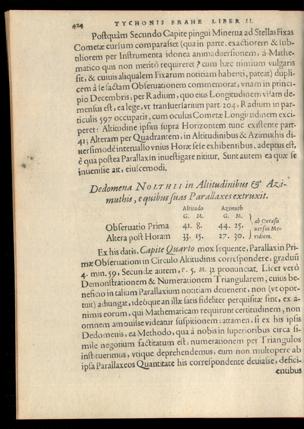 424 TYCHONIS BRAHE LIBER II.
Postquàm Secundo Capite pingui Minerua ad Stellas Fixas
Cometæ cursum comparasset (qua in parte, exactiorem & sub-
tiliorem per Instrumenta idonea animaduersionem, à Mathe-
matico quis non meritò requireret? cum hæc nimium vulgaris
sit, & cuiuis aliqualem Fixarum notitiam habenti, pateat) dupli-
cem à se factam Obseruationem commemorat, vnam in princi-
pio Decembris, per Radium, quo eius Longitudinem visam de-
mensus est, ea lege, vt transuersarium part. 104. Radium in par-
ticulis 597 occuparit, cum oculus Cometæ Longitudinem exci-
peret: Altitudine ipsius supra Horizontem tunc existente part.
41; Alteram per Quadrantem, in Altitudinibus & Azimuthis di-
uersimodè interuallo vnius Horæ sese exhibentibus, adeptus est,
è qua postea Parallaxin inuestigare nititur. Sunt autem ea quæ sic
inuenisse ait, eiuscemodi,
Dedomena NOLTHII in Altitudinibus & Azi-
muthis, e quibus suas Parallaxes extruxit.
Altitudo Azimuth
G. M. G. M.
Obseruatio Prima 41. 8. 44. 25.
Altera post Horam 33. 15. 27. 30.
ab Occasu
versus Me-
ridiem.
Ex his datis, Capite Quarto mox sequente, Parallaxin Pri-
mæ Obseruationi in Circulo Altitudinis correspondere, gradus
4. min. 59, Secundæ autem, pronunciat. Licet verò
Demonstrationem & Numerationem Triangularem, cuius be-
neficio in talium Parallaxium notitiam deuenit, non (vt opor-
tuit) adiungat, ideòque an illæ satis fideliter perquisitæ sint, ex a-
nimis eorum, qui Mathematicam requirunt certitudinem, non
omnem amouisse videatur suspitionem: attamen, si ex his ipsis
Dedomenis, ea Methodo, qua à nobis in superioribus circa si-
mile negotium factitatum est, numerationem per Triangulos
instituerimus, vtique deprehendemus, eum non multopere ab
ipsa Parallaxeos Quantitate his correspondente deuiasse, defici-
entibus